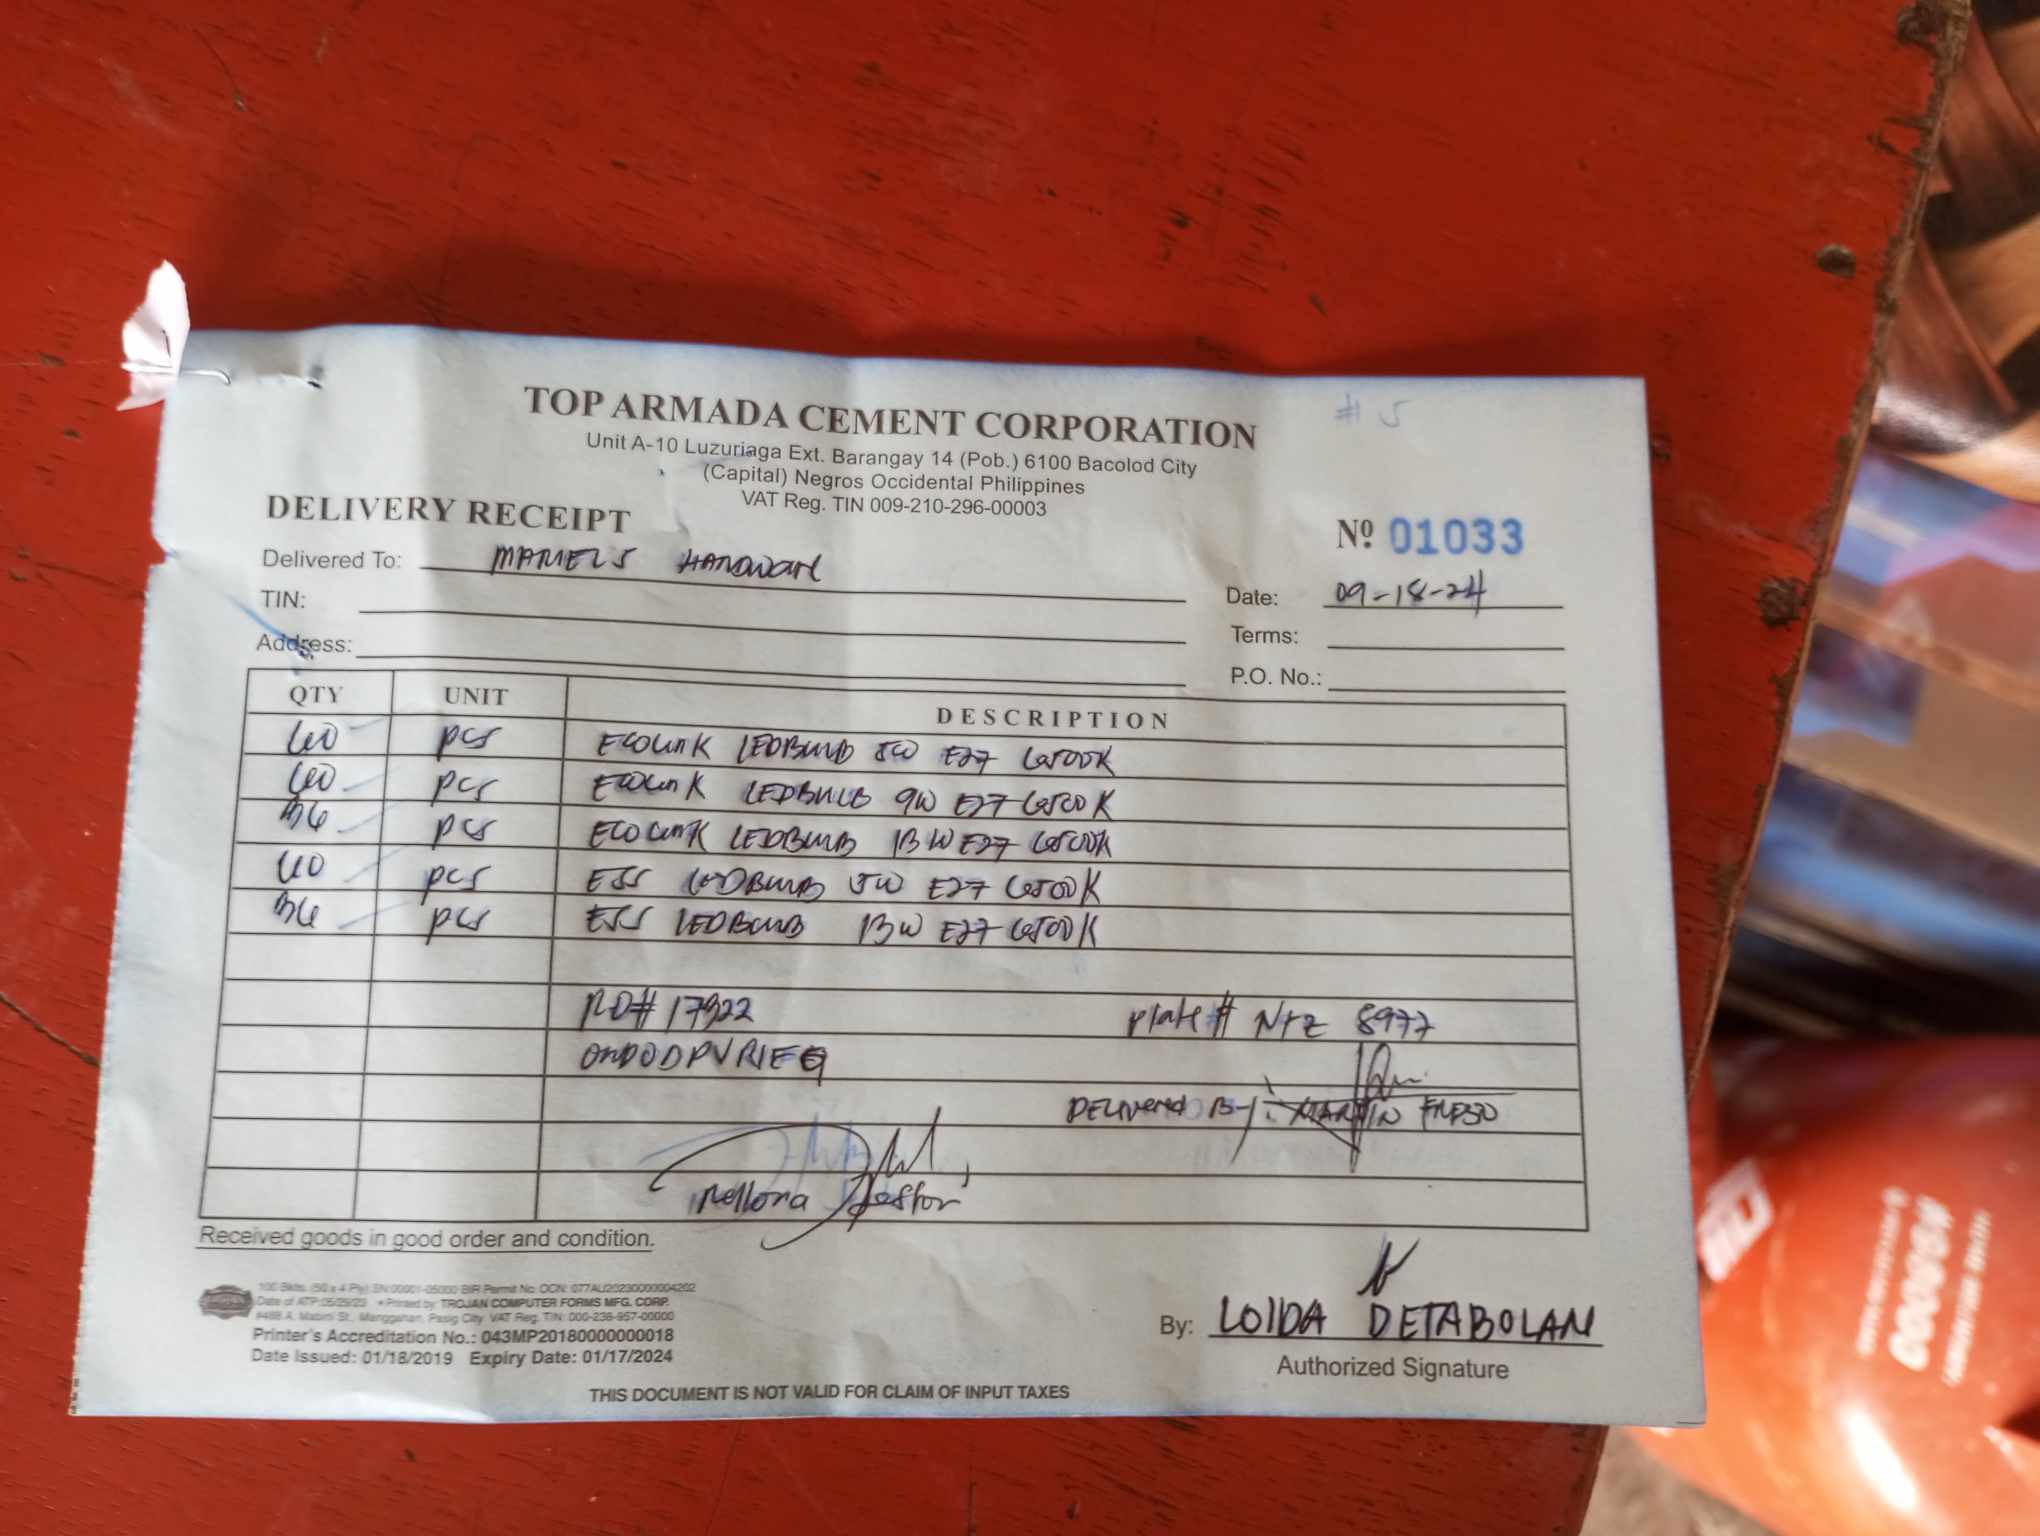 # 5
TOP ARMADA CEMENT CORPORATION
Unit A-10 Luzuriaga Ext. Barangay 14 (Pob.) 6100 Bacolod City
(Capital) Negros Occidental Philippines
VAT Reg. TIN 009-210-296-00003
DELIVERY RECEIPT
Nº 01033
Delivered To: Hardware
Date: 09-18-24
TIN:
Terms:
Address:
P.O. No.:
QTY UNIT DESCRIPTION
60 pcs Ecolink LEDBulb 5W E27 6500K
60 pcs Ecolink LEDBULB 9W E27 6500K
36 pcs Ecolink LEDBulb 13W E27 6500K
60 pcs ESS LEDBulb 5W E27 6500K
36 pcs ESS LEDBulb 13W E27 6500K
17322 Plate# 8977
DELIVERED By: MARTIN
Received goods in good order and condition.
100 Bklts. (50 x 4 Ply) SN:00001-05000 BIR Permit No. OCN: 077AU20230000004202
Printed by: TROJAN COMPUTER FORMS MFG. CORP.
#48B A. Mabini St., Manggahan, Pasig City VAT Reg. TIN: 000-236-957-00000
Printer's Accreditation No.: 043MP20180000000018
Date Issued: 01/18/2019 Expiry Date: 01/17/2024
By: LOIDA DETABOLAN
Authorized Signature
THIS DOCUMENT IS NOT VALID FOR CLAIM OF INPUT TAXES